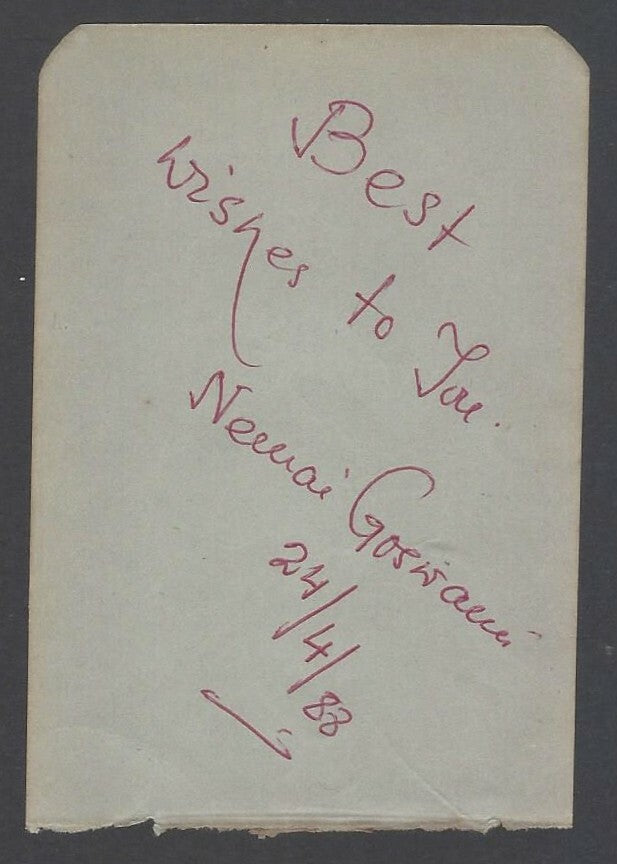 Best
wishes to You.
Nemai Goswami
24/4/88